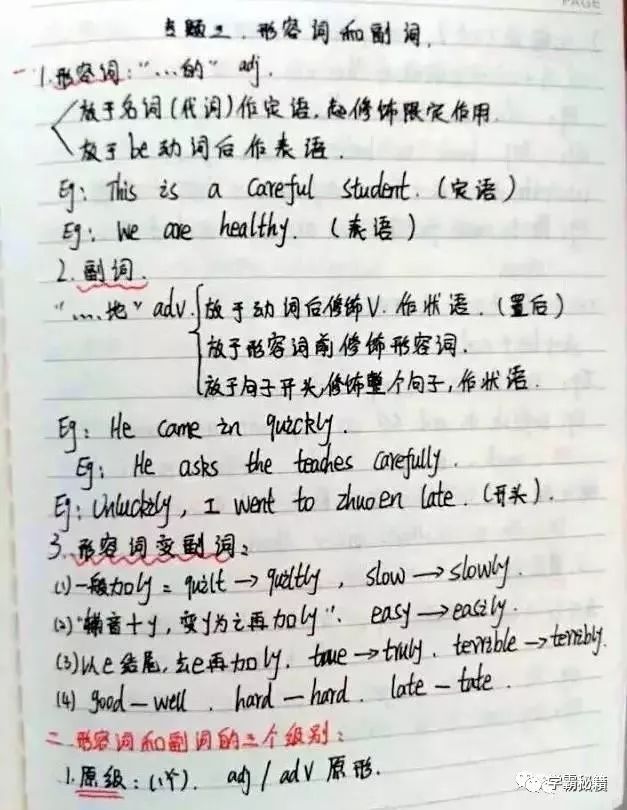 PAGE
专题二.形容词和副词.
一 1.形容词:“…的” adj.
放于名词(代词)作定语,起修饰限定作用.
放于be动词后作表语.
Eg: This is a careful student. (定语)
Eg: We are healthy. (表语)
2.副词.
“….地” adv. 放于动词后修饰V.作状语.(置后)
放于形容词前修饰形容词.
放于句子开头,修饰整个句子,作状语.
Eg: He came in quickly.
Eg: He asks the teaches carefully.
Eg: Unluckily, I went to zhuoen late. (开头).
3.形容词变副词:
(1)一般加ly = quilt → quiltly, slow → slowly.
(2)“辅音+y,变y为i再加ly”. easy → easily.
(3)以e结尾,去e再加ly. true → truly. terrible → terribly.
(4) good — well. hard — hard. late — tate.
二.形容词和副词的三个级别:
1.原级:(1个). adj / adv 原形.
学霸秘籍